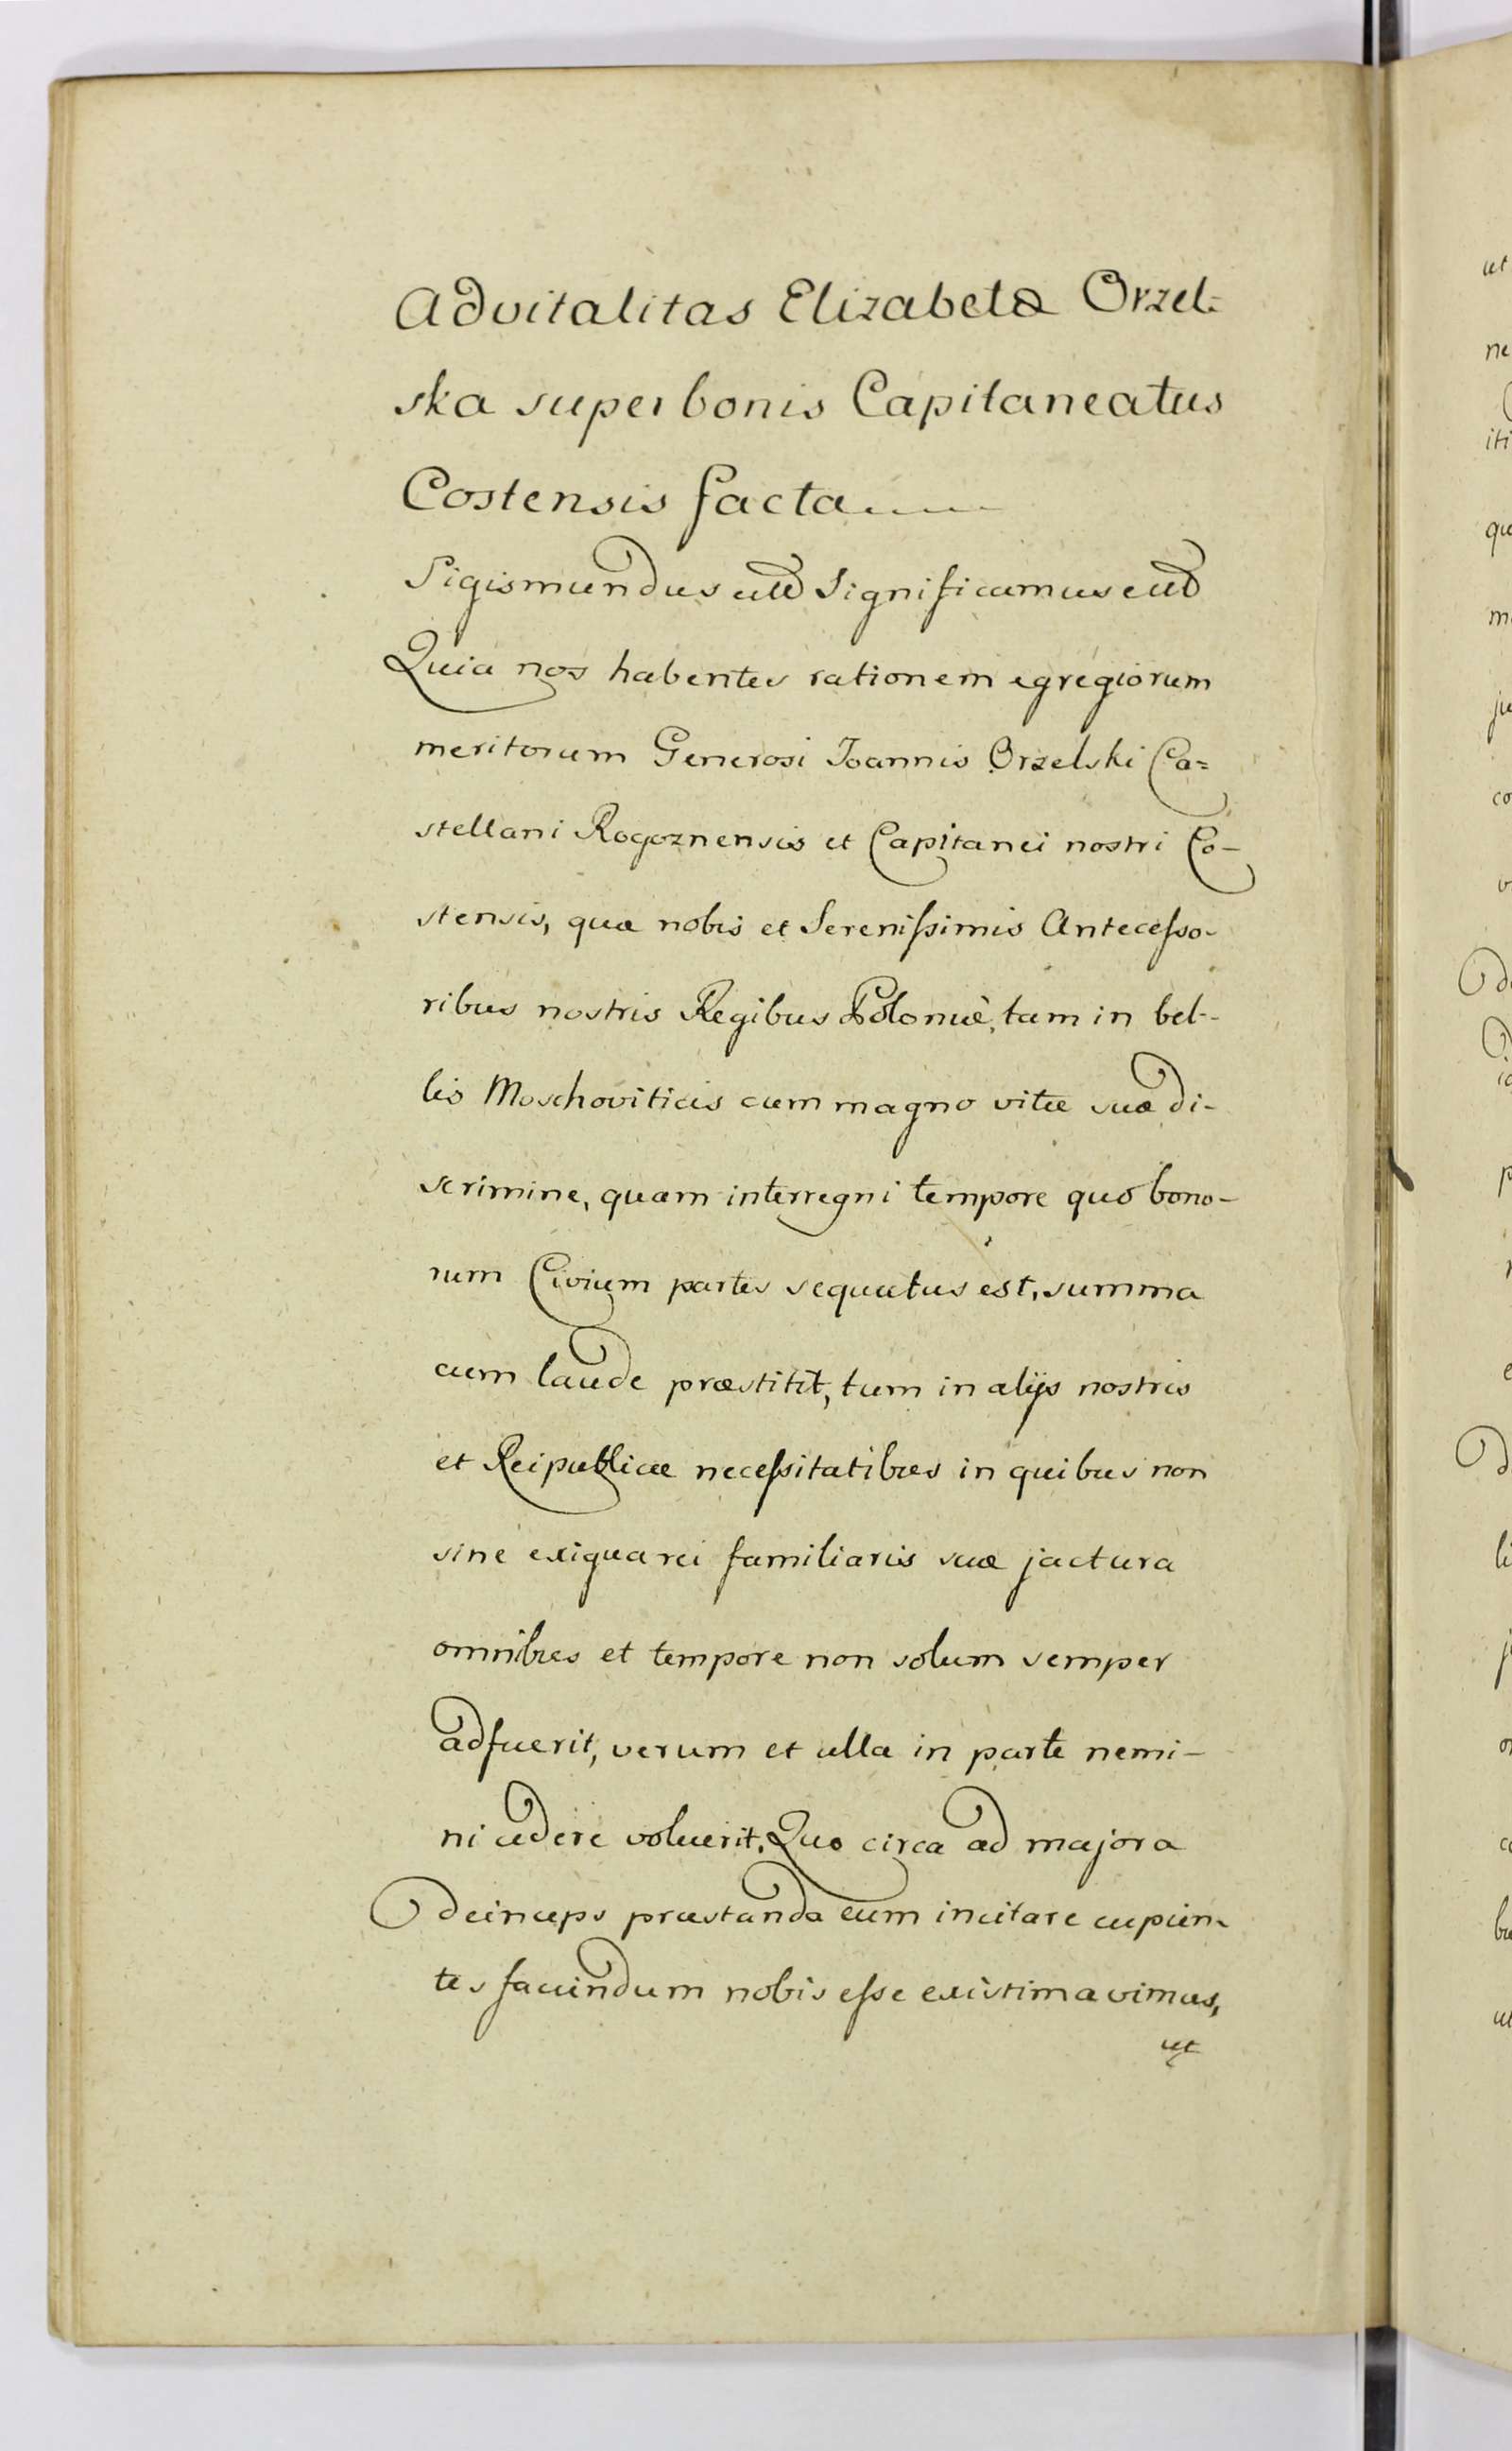 Advitalitas Elizabetæ Orzel-
ska super bonis Capitaneatus
Costensis facta
Sigismundus etc Significamus etc
Quia nos habentes rationem egregiorum
meritorum Generosi Joannis Orzelski Ca=
stellani Rogoznensis et Capitanei nostri Co-
stensis, quæ nobis et Serenissimis Antecesso-
ribus nostris Regibus Poloniæ, tam in bel-
lis Moschoviticis cum magno vitæ suæ di-
scrimine, quam interregni tempore quo bono-
rum Civium partes sequutus est, summa
cum laude præstitit, tum in alijs nostris
et Reipublicæ necessitatibus in quibus non
sine exigua rei familiaris suæ jactura
omnibus et tempore non solum semper
adfuerit, verum et ulla in parte nemi-
ni cedere voluerit. Quo circa ad majora
deinceps præstanda eum incitare cupien-
tes faciendum nobis esse existimavimus,
ut